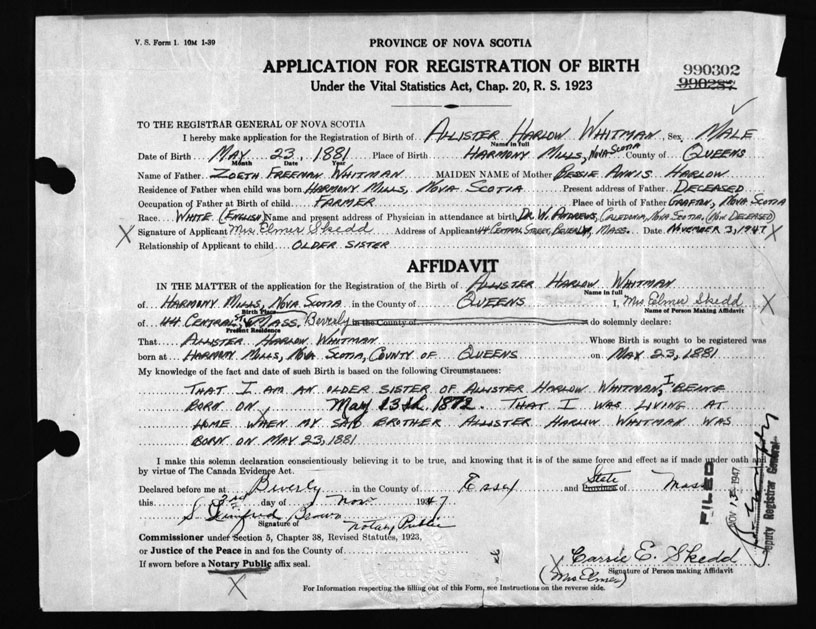 V. S. Form 1. 10M 1-39
PROVINCE OF NOVA SCOTIA
APPLICATION FOR REGISTRATION OF BIRTH
990302
990287
Under the Vital Statistics Act, Chap. 20, R. S. 1923
TO THE REGISTRAR GENERAL OF NOVA SCOTIA
I hereby make application for the Registration of Birth of ALLISTER HARLOW WHITMAN, Sex MALE
Name in full
Date of Birth MAY 23, 1881 Place of Birth HARMONY MILLS, NOVA SCOTIA County of QUEENS
Month Date Year
Name of Father ZOETH FREEMAN WHITMAN MAIDEN NAME of Mother BESSIE ANNIS HARLOW
Residence of Father when child was born HARMONY MILLS, NOVA SCOTIA Present address of Father DECEASED
Occupation of Father at Birth of child FARMER Place of birth of Father GRAFTON, NOVA SCOTIA
Race WHITE (ENGLISH) Name and present address of Physician in attendance at birth DR. W. ANDREWS, CALEDONIA, NOVA SCOTIA (NOW DECEASED)
X Signature of Applicant Mrs. Elmer Skedd Address of Applicant 44 CENTRAL STREET, BEVERLY, MASS. Date NOVEMBER 3, 1947 X
Relationship of Applicant to child OLDER SISTER
AFFIDAVIT
IN THE MATTER of the application for the Registration of the Birth of ALLISTER HARLOW WHITMAN
Name in full
of HARMONY MILLS, NOVA SCOTIA in the County of QUEENS I, Mrs Elmer Skedd X
Birth Place Name of Person Making Affidavit
of 44 CENTRAL ST. MASS. Beverly in the County of do solemnly declare:
Present Residence
That ALLISTER HARLOW WHITMAN Whose Birth is sought to be registered was
born at HARMONY MILLS, NOVA SCOTIA, COUNTY OF QUEENS on MAY 23, 1881
My knowledge of the fact and date of such Birth is based on the following Circumstances:
THAT I AM AN OLDER SISTER OF ALLISTER HARLOW WHITMAN, I BEING
BORN ON May 13th 1872. THAT I WAS LIVING AT
HOME WHEN MY SAID BROTHER ALLISTER HARLOW WHITMAN WAS
BORN ON MAY 23, 1881
I make this solemn declaration conscientiously believing it to be true, and knowing that it is of the same force and effect as if made under oath and
by virtue of The Canada Evidence Act.
Declared before me at Beverly in the County of Essex and State Province of Mass
this 3rd day of Nov. 1947
S. Winifred Brown
Signature of Notary Public
Commissioner under Section 5, Chapter 38, Revised Statutes, 1923,
or Justice of the Peace in and for the County of
If sworn before a Notary Public affix seal.
X
X Carrie E. Skedd
(Mrs Elmer) Signature of Person making Affidavit
For Information respecting the filling out of this Form, see Instructions on the reverse side.
FILED
NOV 13 1947
Deputy Registrar General